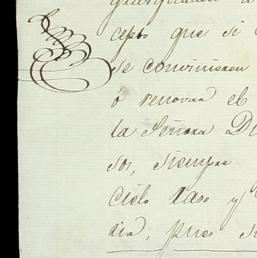 cepto que si
se conviniesen
o renovar el
la Señora D
sos, siempre
Cielo raso y
ria, pues